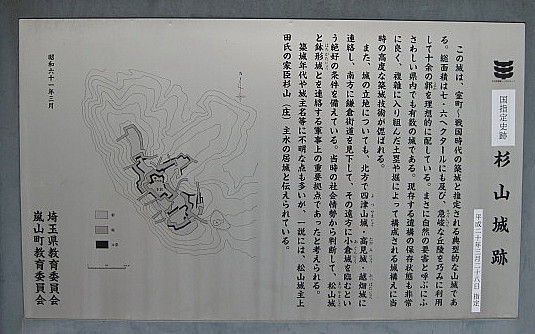 国指定史跡　杉山城跡
平成二十年三月二十八日 指定
この城は、室町～戦国時代の築城と推定される典型的な山城であ
る。総面積は七・六ヘクタールにも及び、急峻な丘陵を巧みに利用
して十余の郭を理想的に配している。まさに自然の要害と呼ぶにふ
さわしい県内でも有数の城である。現存する遺構の保存状態も非常
に良く、複雑に入り組んだ土塁や堀によって構成される城構えに当
時の高度な築城技術が偲ばれる。
また、城の立地についても、北方で四津山城、高見城・越畑城に
連絡し、南方に鎌倉街道を見下して、その遠方に小倉城を臨むとい
う絶好の条件を備えている。当時の社会情勢から判断して、松山城
と鉢形城とを連絡する軍事上の重要拠点であったと考えられる。
築城年代や城主名等に不明な点も多いが、一説には、松山城主上
田氏の家臣杉山（庄）主水の居城と伝えられている。
昭和六十一年三月
埼玉県教育委員会
嵐山町教育委員会